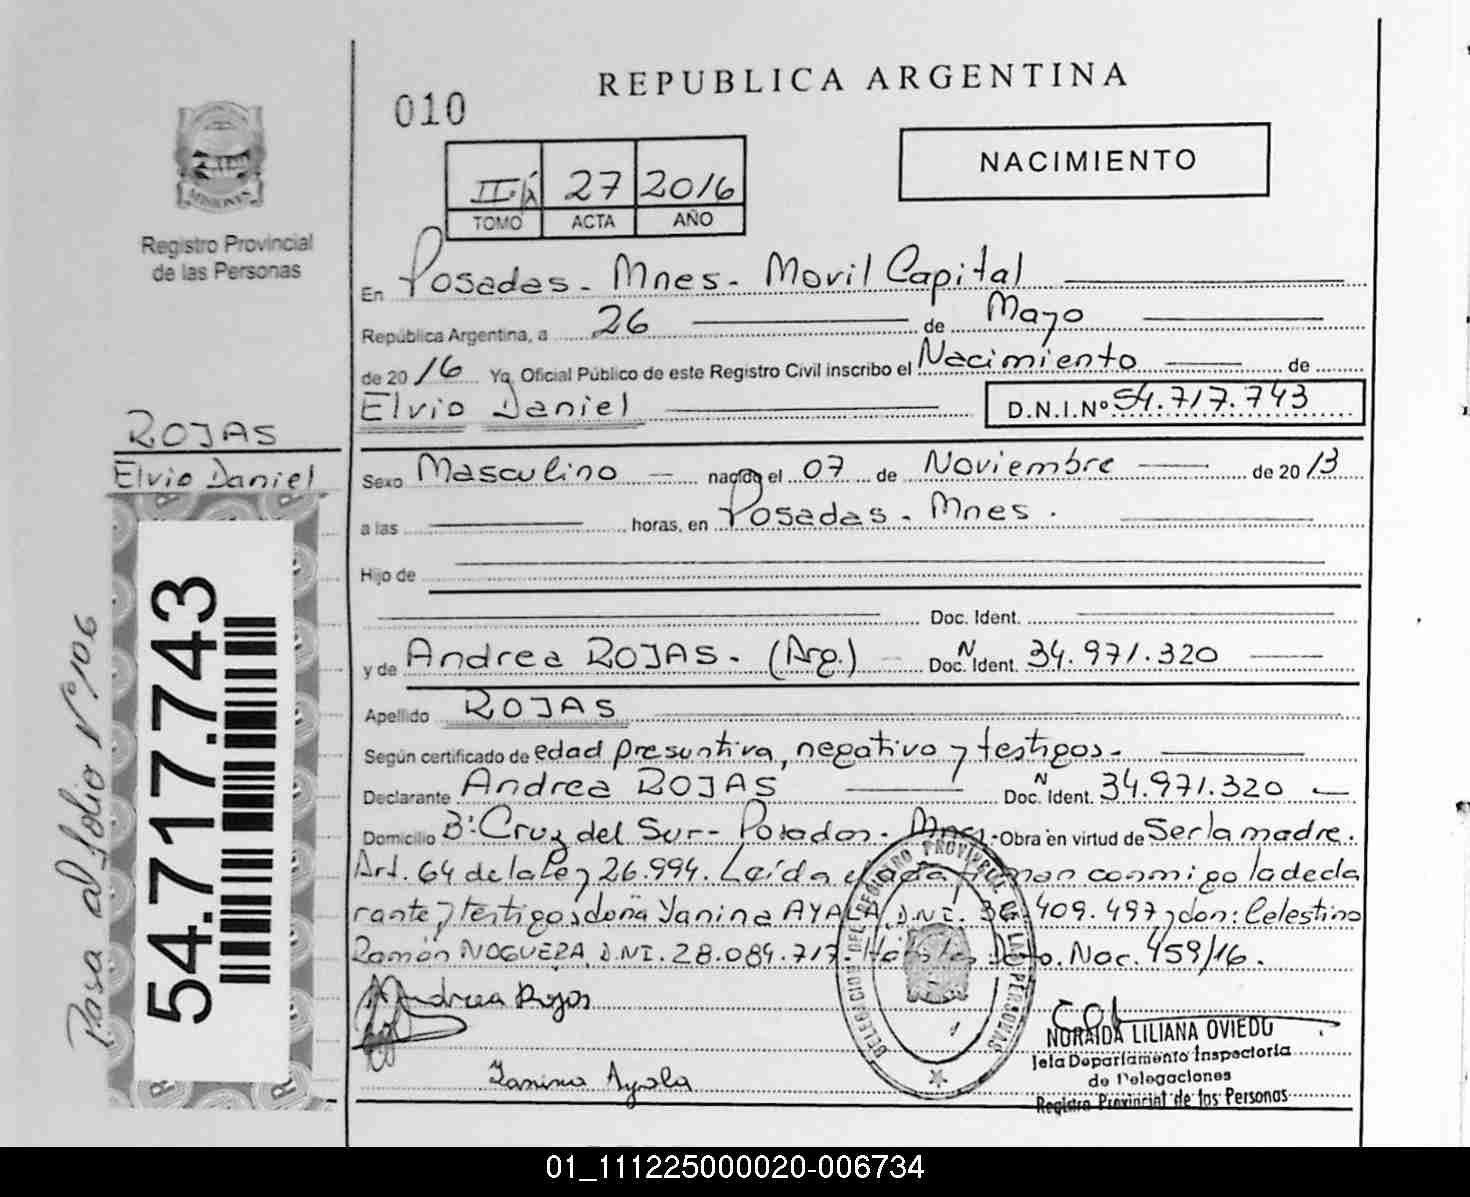 REPUBLICA ARGENTINA
010
NACIMIENTO
27 2016
TOMO ACTA AÑO
MISIONES
Registro Provincial
de las Personas
En Posadas - Mnes - Movil Capital
República Argentina, a 26 de Mayo
de 2016 Yo, Oficial Público de este Registro Civil inscribo el Nacimiento de
Elvio Daniel D.N.I.Nº 54.717.743
ROJAS
Elvio Daniel
Sexo Masculino nacido el 07 de Noviembre de 2013
a las horas, en Posadas - Mnes.
Hijo de
Doc. Ident.
y de Andrea ROJAS - (Arg.) N Doc. Ident. 34.971.320
Apellido ROJAS
Según certificado de edad presuntiva, negativo y testigos -
Declarante Andrea ROJAS N Doc. Ident. 34.971.320
Domicilio Bº Cruz del Sur - Posadas - Mnes - Obra en virtud de Ser la madre.
Art. 64 de la Ley 26.994. Leída el acta firman conmigo la decla
rante y testigos doña Yanina AYALA, D.N.I. 409.497 y don: Celestino
Ramón NOGUERA, D.NI. 28.084.717. Nac. 459/16.
Andrea Rojas
Yanina Ayala
DELEGACION DEL REGISTRO PROVINCIAL DE LAS PERSONAS
NORAIDA LILIANA OVIEDO
Jefa Departamento Inspectoria
de Delegaciones
Registro Provincial de las Personas
54.717.743
Pasa al folio Nº 106
01_111225000020-006734